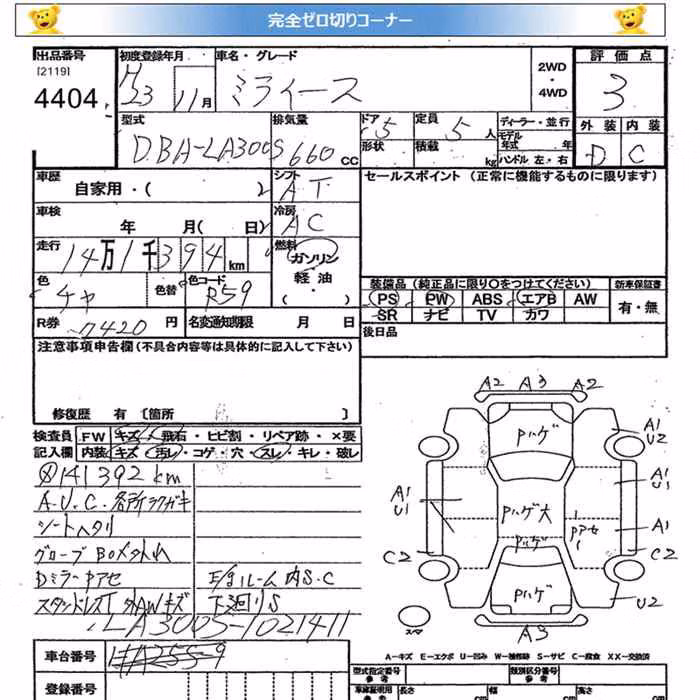 完全ゼロ切りコーナー
出品番号 初度登録年月 車名・グレード 2WD・4WD 評価点
[2119] H
4404 23 11月 ミライース 3
型式 排気量 ドア 5 定員 5人 ディーラー・並行 外装 内装
DBA-LA300S 660cc 形状 積載 kg モデル年式 年 D C
ハンドル 左・右
車歴 シフト セールスポイント（正常に機能するものに限ります）
自家用・（ ） AT
車検 冷房
年 月（ 日） AC
走行 燃料
14万1千394km ガソリン
軽油
・（ ）
色 色替 色コード 装備品（純正品に限り○をつけてください） 新車保証書
チャ R59 PS PW ABS エアB AW 有・無
SR ナビ TV カワ
R券 7420円 名変通知期限 月 日 後日品
注意事項申告欄（不具合内容等は具体的に記入して下さい）
修復歴 有〔箇所 〕
検査員 FW キズ・飛石・ヒビ割・リペア跡・×要
記入欄 内装 キズ・汚レ・コゲ・穴・スレ・キレ・破レ
141392km
A.U.C.各所ラクガキ
シートヘタリ
グローブBOXメクれ
DミラーPアセ E/gルーム内S.C
スタンドレスT 外AWキズ 下廻りS
LA300S-1021411
車台番号
登録番号
A2 A3 A2
Pハゲ
A1
U2
A1
U1
A1
U1
Pハゲ大
Pアセ
A1
Pハゲ
C2
C2
Pハゲ
U2
スペア
A3
A-キズ E-エクボ U-凹み W-補修跡 S-サビ C-腐食 XX-交換済
型式指定番号 参考 類別区分番号 参考
車検証明用 参考 長さ cm 幅 cm 高さ cm